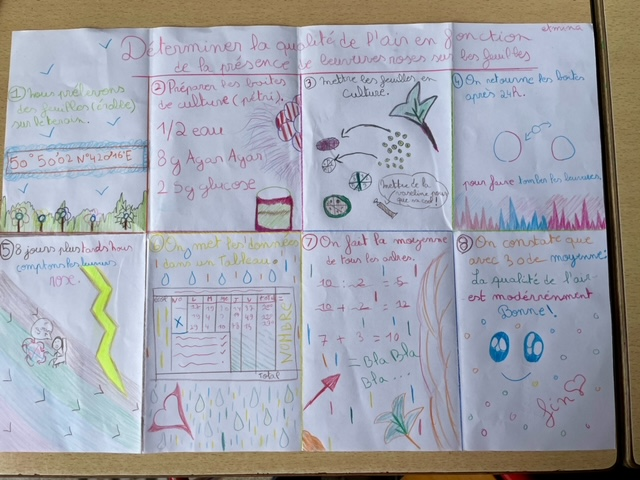 Déterminer la qualité de l'air en fonction
de la présence de levures roses sur les feuilles
① Nous prélevons
des feuilles (érable)
sur le terrain.
50° 50'02 N°420
② Préparer les boites
de culture (pétri).
1/2 eau
8g Agar Agar
25g glucose
③ Mettre les feuilles en
culture.
mettre de la
vaseline pour
que
④ On retourne les boites
après 24h.
pour faire tomber les levures
⑤ 8 jours plus tard nous
comptons les levures
rose.
On met les données
dans un Tableau.
NOMBRE
Total
⑦ On fait la moyenne
de tous les arbres.
10 : 2 = 5
10 + 2 = 12
7 + 3 = 10
= Bla Bla
Bla ...
⑧ On constate que
avec 3 0 de moyenne:
La qualité de l'air
est modérrement
Bonne!
fin